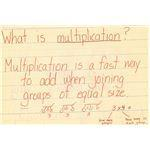 What is multiplication?
Multiplication is a fast way
to add when joining
groups of equal size.
3 x 4 =
3 3 3